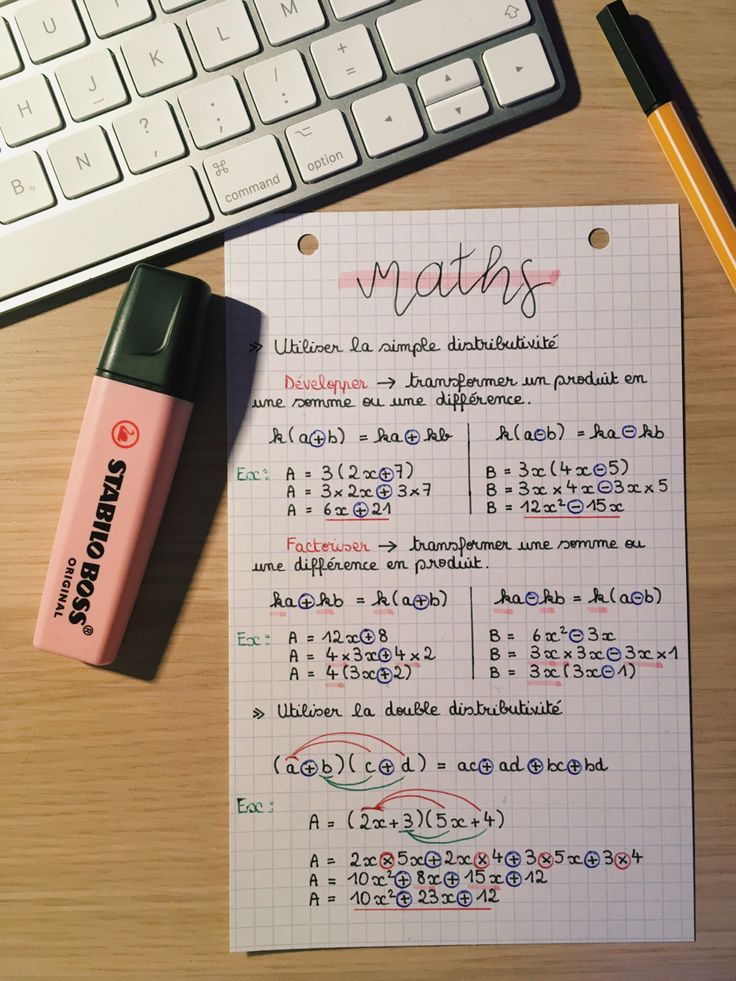 U I O P
H J K L : ; + =
B N ? , . ; / : + =
⌘ command ⌥ option
STABILO BOSS®
ORIGINAL
maths
» Utiliser la simple distributivité
Développer → transformer un produit en
une somme ou une différence.
k(a+b) = ka+kb
k(a-b) = ka-kb
Ex:
A = 3(2x+7)
A = 3×2x+3×7
A = 6x+21
B = 3x(4x-5)
B = 3x×4x-3x×5
B = 12x²-15x
Factoriser → transformer une somme ou
une différence en produit.
ka+kb = k(a+b)
ka-kb = k(a-b)
Ex:
A = 12x+8
A = 4×3x+4×2
A = 4(3x+2)
B = 6x²-3x
B = 3x×3x-3x×1
B = 3x(3x-1)
» Utiliser la double distributivité
(a+b)(c+d) = ac+ad+bc+bd
Ex:
A = (2x+3)(5x+4)
A = 2x×5x+2x×4+3×5x+3×4
A = 10x²+8x+15x+12
A = 10x²+23x+12